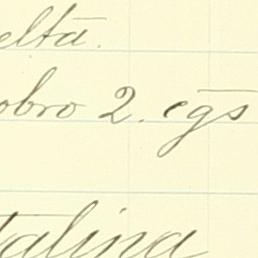 elta.
obro 2. cgs
talina